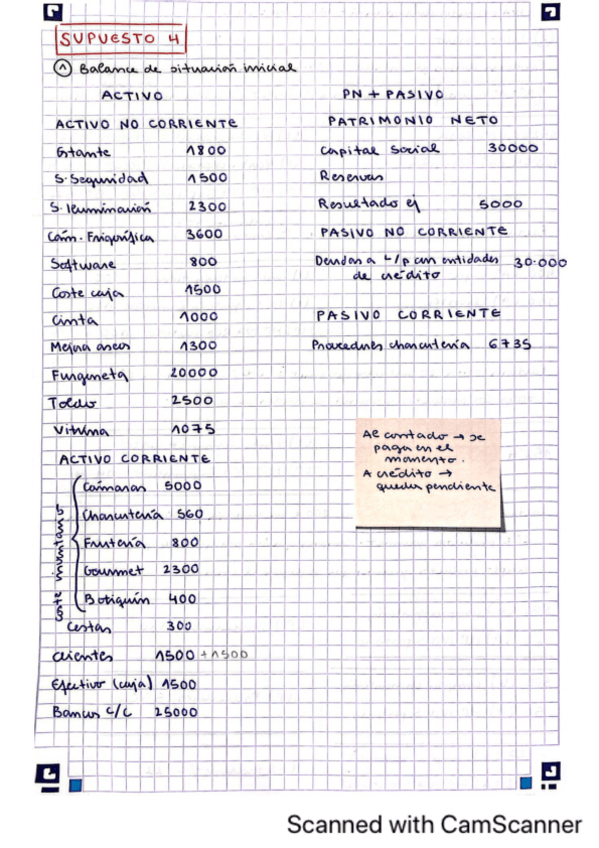 SUPUESTO 4
① Balance de situación inicial
ACTIVO
ACTIVO NO CORRIENTE
Estante 1800
S. Seguridad 1500
S. Iluminación 2300
Cám. Frigorífica 3600
Software 800
Coste caja 1500
Cinta 1000
Mejora aseos 1300
Furgoneta 20000
Toldo 2500
Vitrina 1075
ACTIVO CORRIENTE
Camaras 5000
Charcutería 560
Frutería 800
Gourmet 2300
Botiquín 400
Cestas 300
Clientes 1500 + 1500
Efectivo (caja) 1500
Bancos c/c 25000
PN + PASIVO
PATRIMONIO NETO
Capital Social 30000
Reservas
Resultado ej 5000
PASIVO NO CORRIENTE
Deudas a L/p con entidades 30.000
de crédito
PASIVO CORRIENTE
Proveedores charcutería 6735
Al contado → se
paga en el
momento.
A crédito →
queda pendiente
Scanned with CamScanner